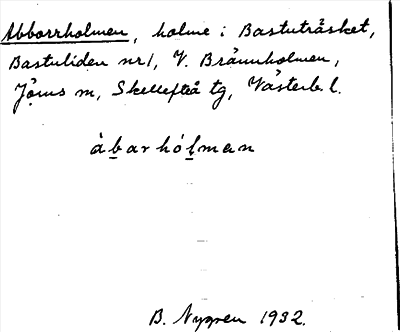 Abborrholmen, holme i Bastuträsket,
Bastuliden nr 1, V. Brännholmen,
Jörns sn, Skellefteå tg, Västerb. l.
àbarhólmən
B. Nygren 1932.